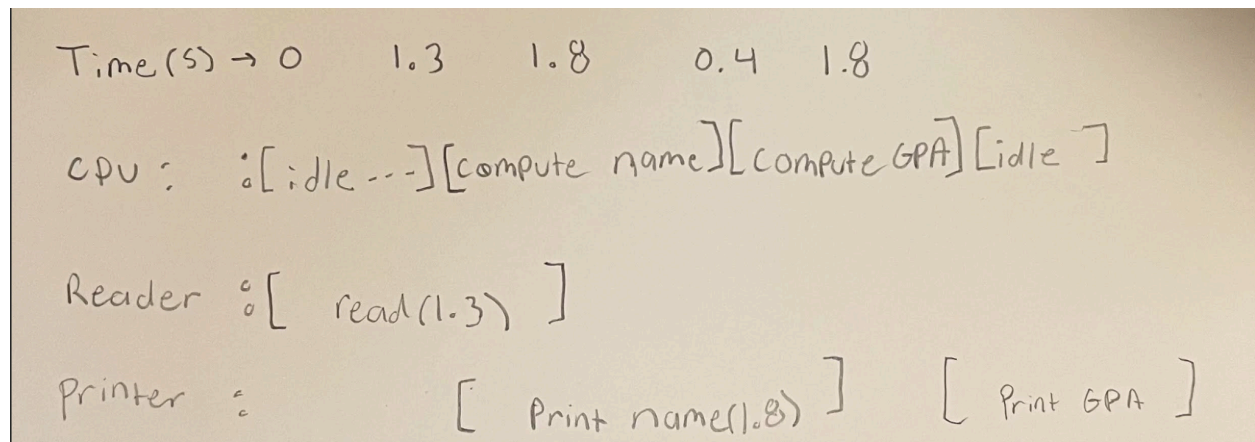 Time(s) → 0 1.3 1.8 0.4 1.8
CPU : :[idle ---][compute name][compute GPA][idle ]
Reader :[ read(1.3) ]
Printer : [ Print name(1.8) ] [ Print GPA ]